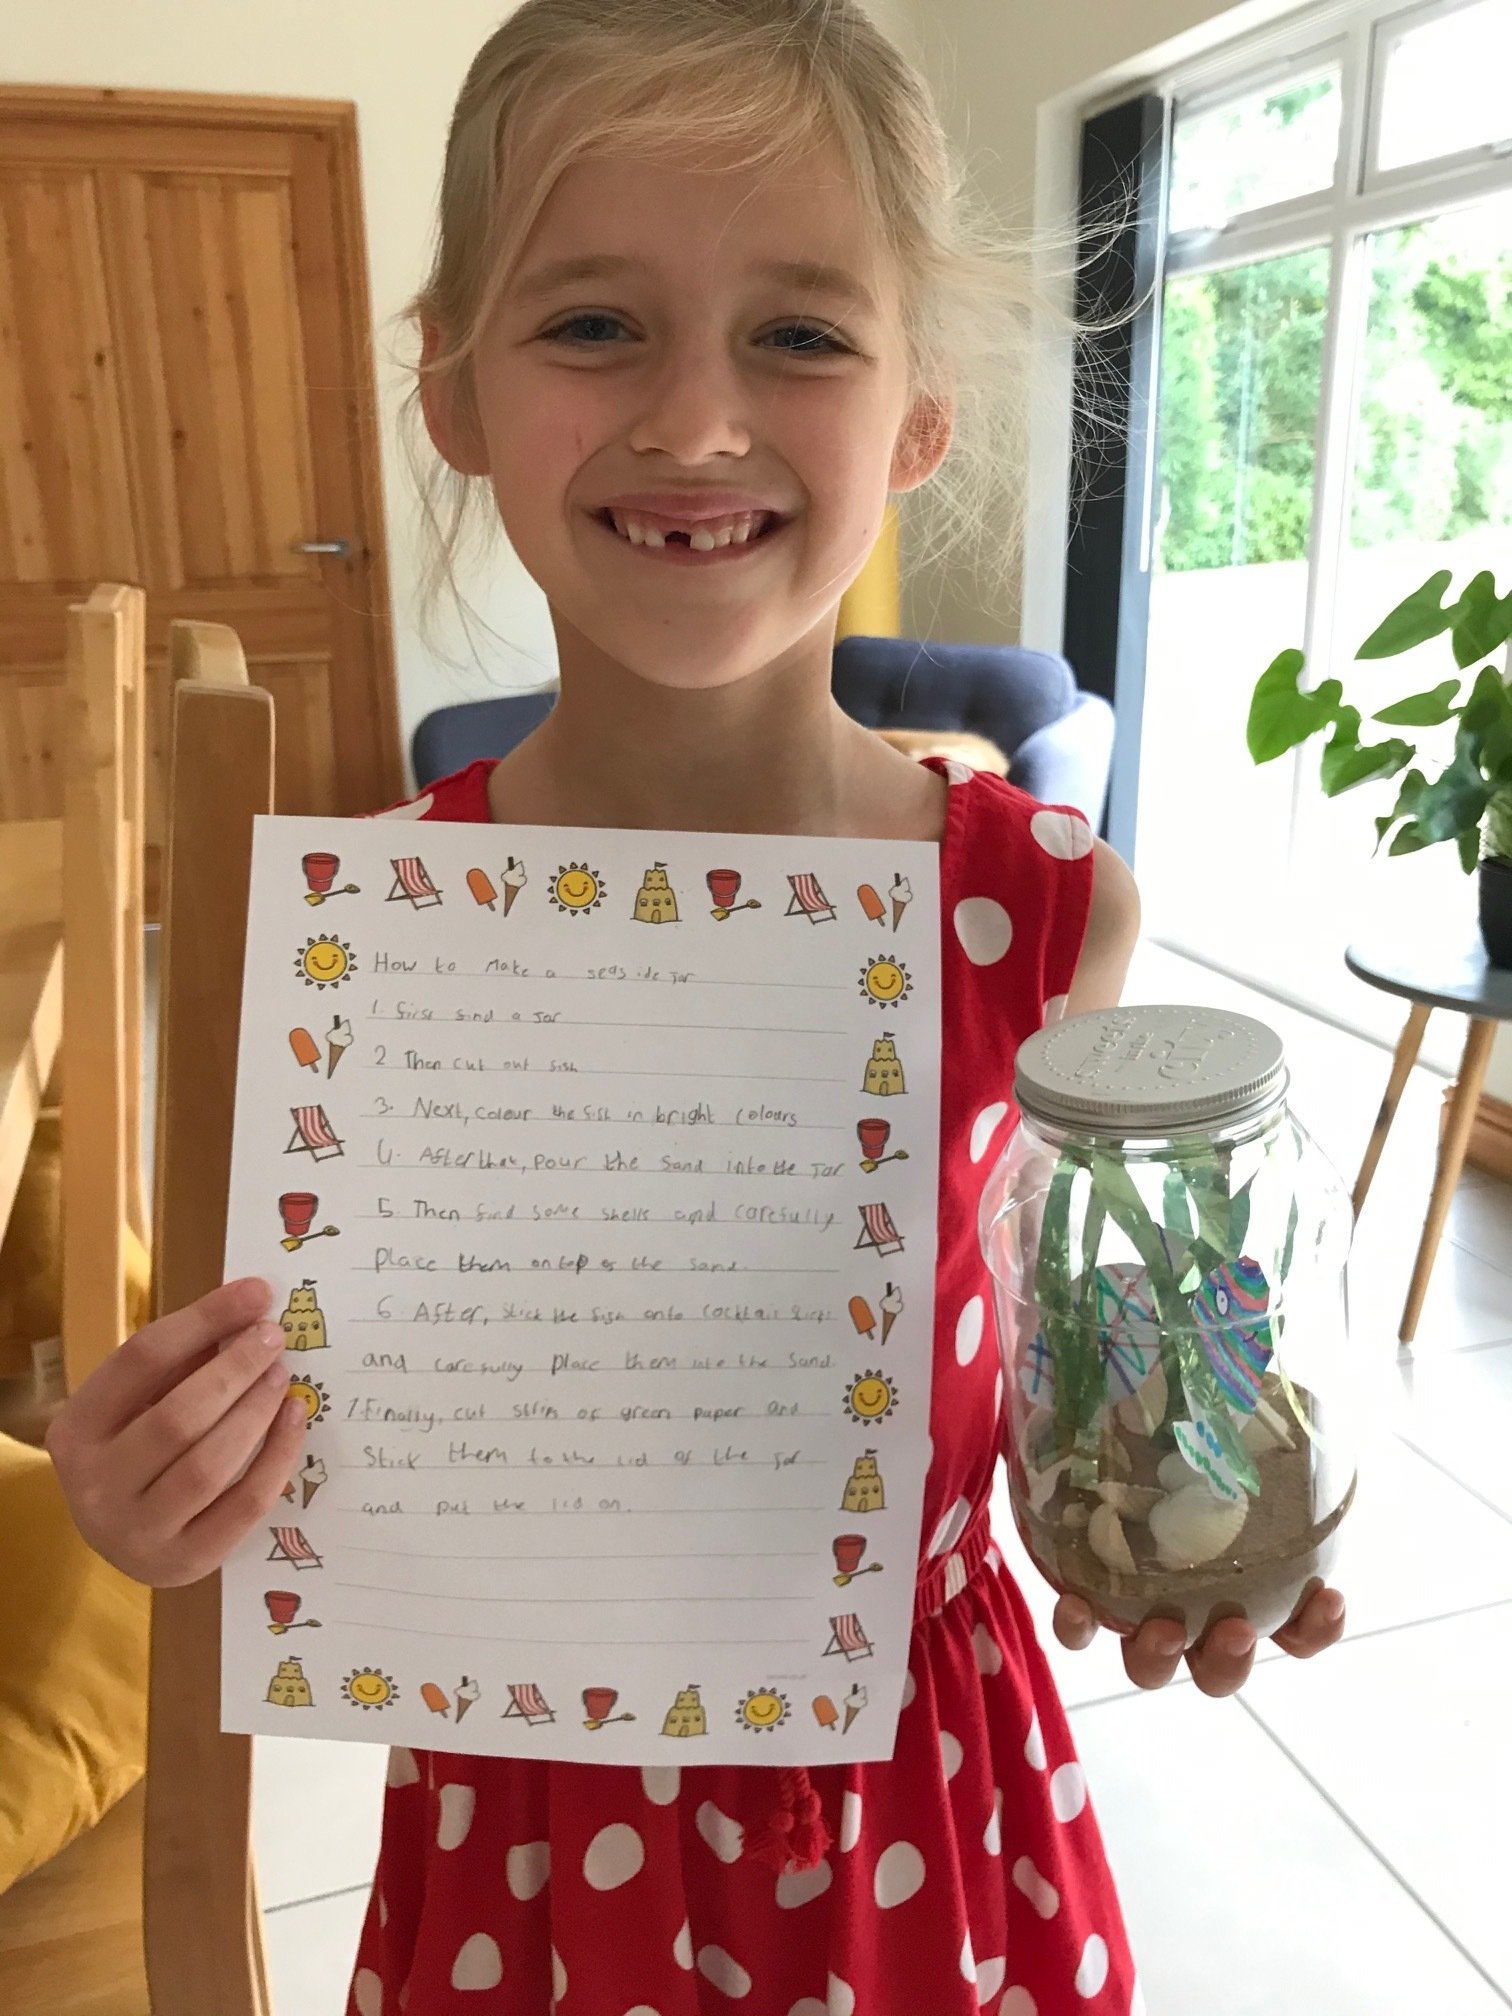 How to make a seaside jar
1. first find a jar
2 Then cut out fish
3. Next, colour the fish in bright colours
4. After that, pour the sand into the jar
5 Then find some shells and carefully
place them on top of the sand.
6. After, stick the fish onto cocktail sticks
and carefully place them into the sand.
7. Finally, cut strips of green paper and
stick them to the lid of the jar
and put the lid on.